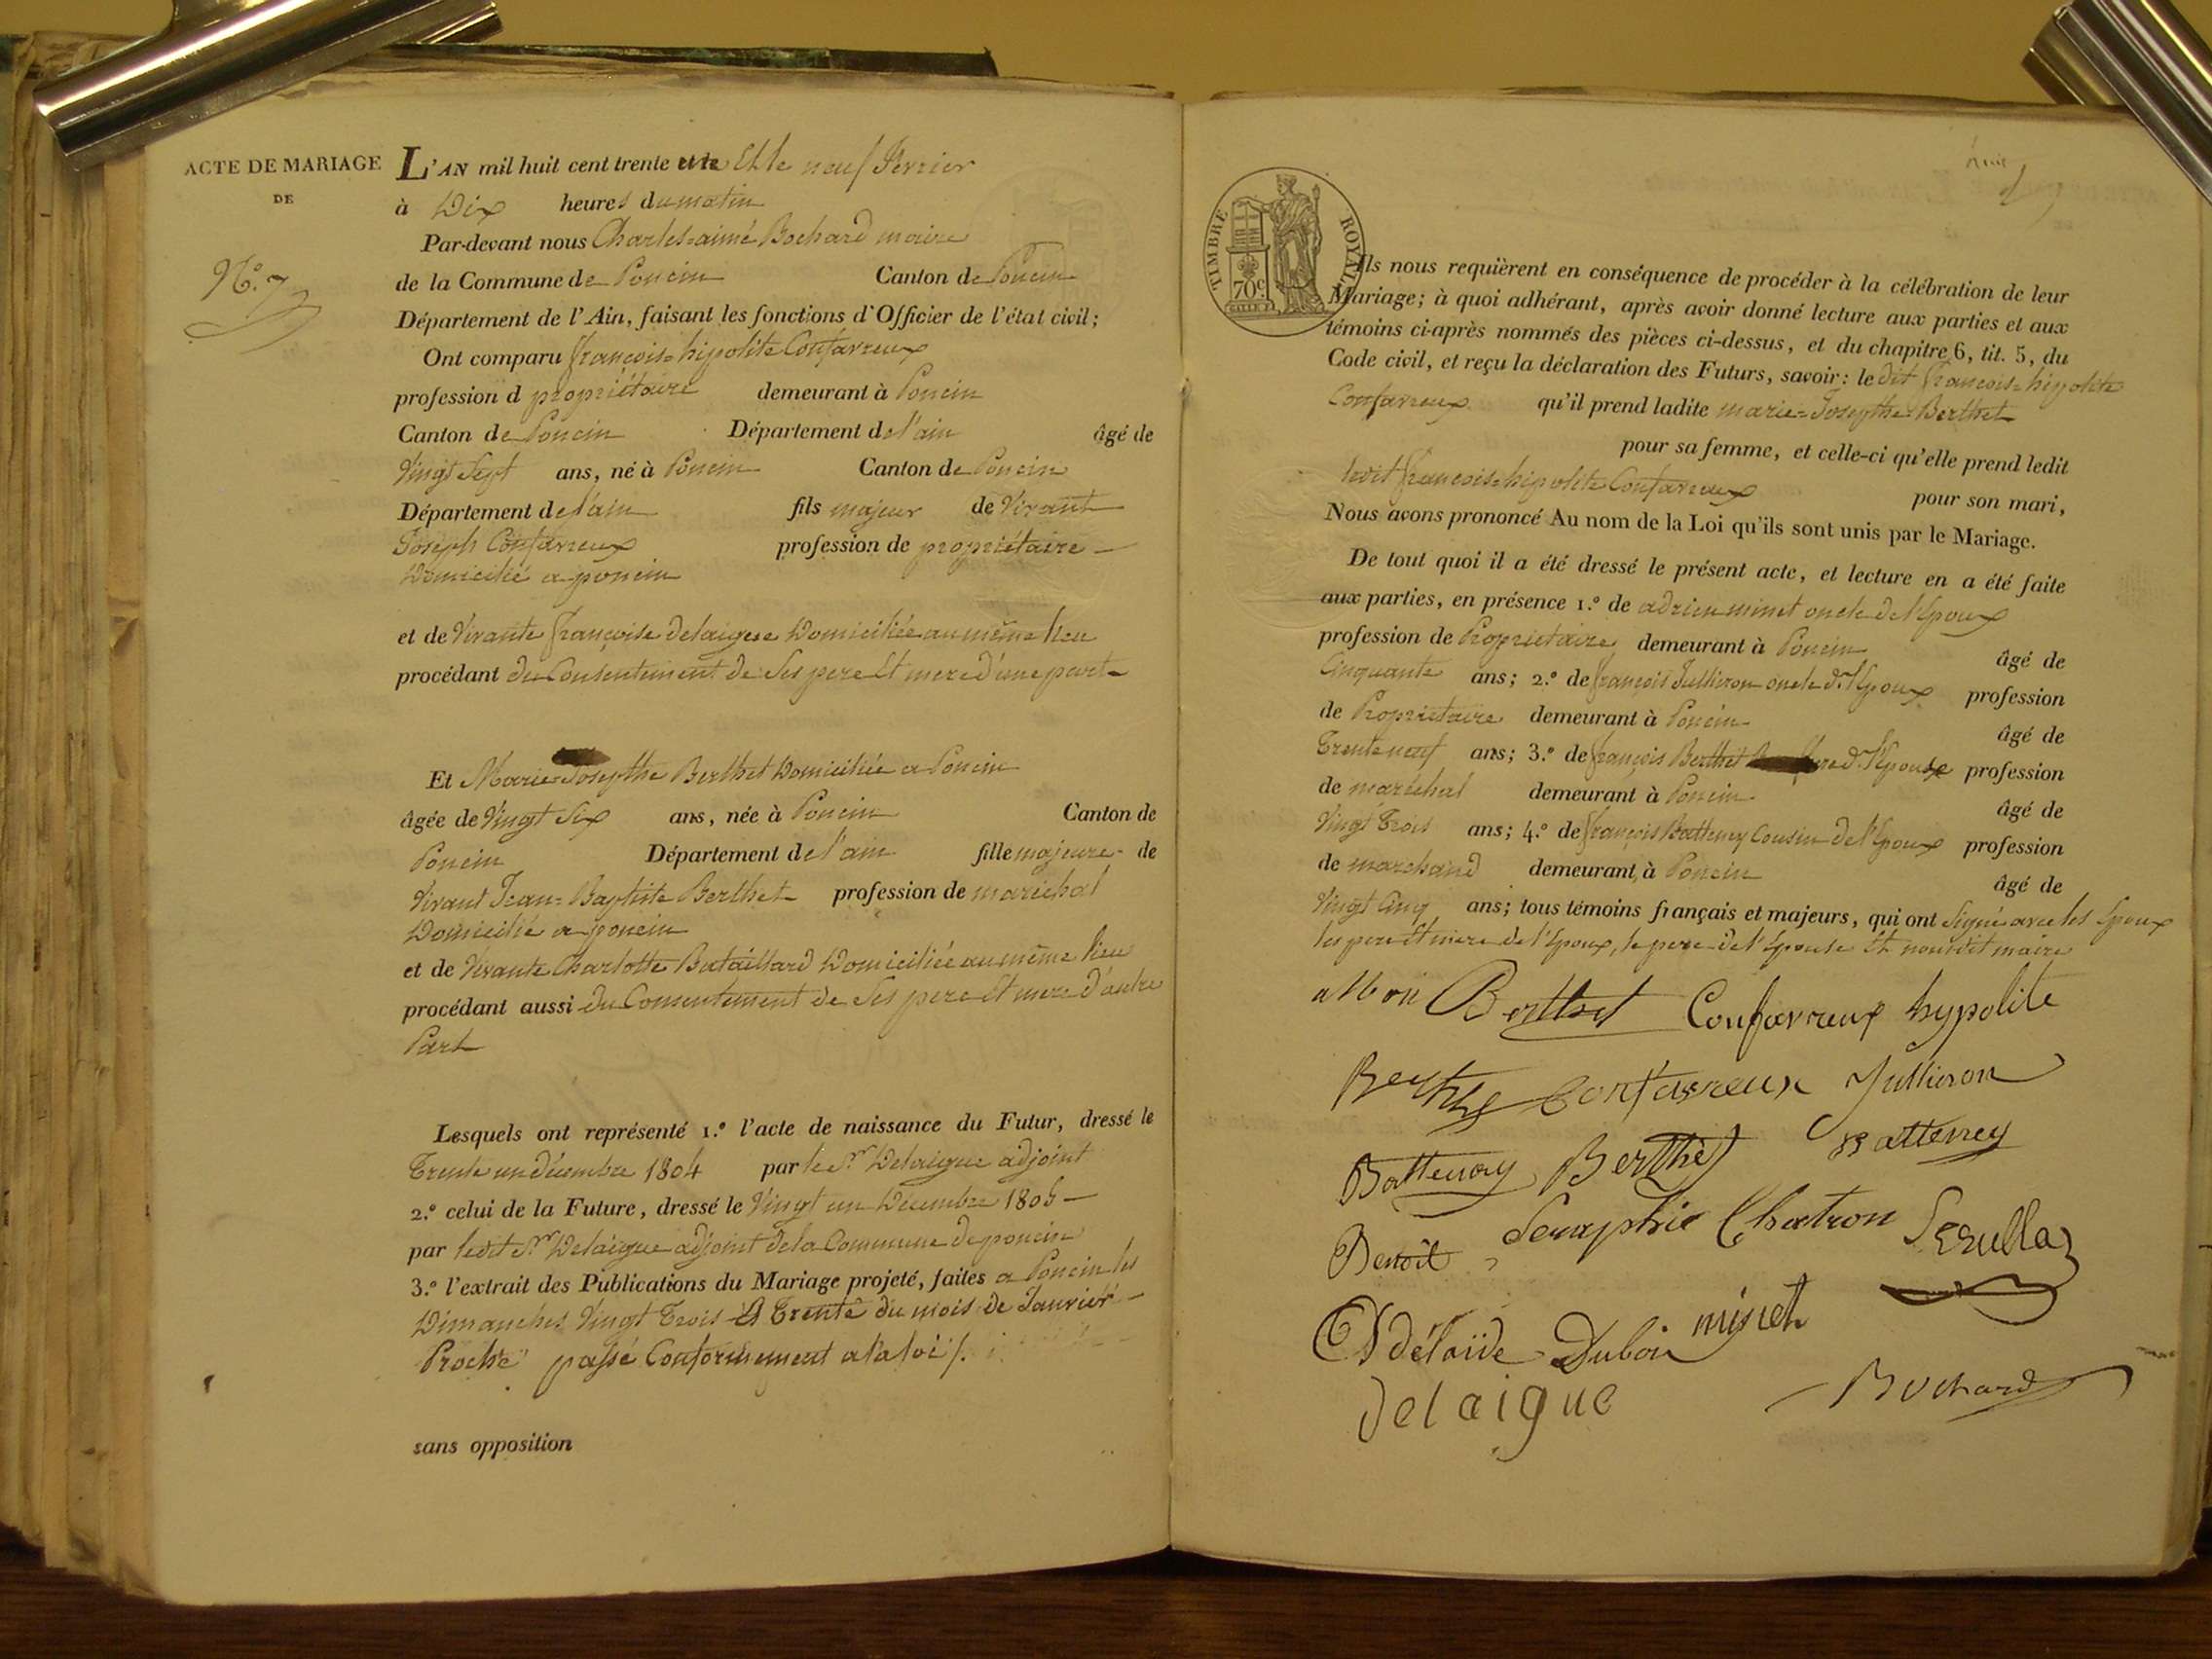 ACTE DE MARIAGE
DE
N.º 7
L'AN mil huit cent trente et le neuf Fevrier
à Dix heures du matin
Par-devant nous Charles=aimé Bochard maire
de la Commune de Poncin Canton de Poncin
Département de l'Ain, faisant les fonctions d'Officier de l'état civil;
Ont comparu françois=hipolite Confavreux
profession d propriétaire demeurant à Poncin
Canton de Poncin Département de l'ain âgé de
Vingt Sept ans, né à Poncin Canton de Poncin
Département de l'ain fils majeur de Vivant
Joseph Confavreux profession de propriétaire
Domicilié a poncin
et de Vivante françoise Delaigue Domiciliée au même lieu
procédant du Consentement de Ses pere Et mere d'une part
Et Marie=Josephte Berthet Domiciliée a Poncin
âgée de Vingt Six ans, née à Poncin Canton de
Poncin Département de l'ain fille majeure de
Vivant Jean=Baptiste Berthet profession de maréchal
Domicilié a poncin
et de Vivante Charlotte Bataillard Domiciliée au même lieu
procédant aussi du Consentement de Ses pere Et mere d'autre
Part
Lesquels ont représenté 1.º l'acte de naissance du Futur, dressé le
Trente un décembre 1804 par le Sr Delaigue adjoint
2.º celui de la Future, dressé le Vingt un Decembre 1805
par ledit Sr Delaigue adjoint de la Commune de poncin
3.º l'extrait des Publications du Mariage projeté, faites a Poncin les
Dimanches Vingt Trois Et Trente du mois de Janvier
Proche passé Conformement a la loi /.
sans opposition
TIMBRE ROYAL
70c
Ils nous requièrent en conséquence de procéder à la célébration de leur
Mariage; à quoi adhérant, après avoir donné lecture aux parties et aux
témoins ci-après nommés des pièces ci-dessus, et du chapitre 6, tit. 5, du
Code civil, et reçu la déclaration des Futurs, savoir: le dit françois=hipolite
Confavreux qu'il prend ladite marie=Josephte=Berthet
pour sa femme, et celle-ci qu'elle prend ledit
ledit françois=hipolite Confavreux pour son mari,
Nous avons prononcé Au nom de la Loi qu'ils sont unis par le Mariage.
De tout quoi il a été dressé le présent acte, et lecture en a été faite
aux parties, en présence 1.º de adrien minet oncle de l'Epoux
profession de Propriétaire demeurant à Poncin âgé de
Cinquante ans; 2.º de françois Jullieron oncle d. l'Epoux profession
de Propriétaire demeurant à Poncin âgé de
Trente neuf ans; 3.º de françois Berthet frere d. l'Epouse profession
de maréchal demeurant à Poncin âgé de
Vingt Trois ans; 4.º de françois Batteney Cousin de l'Epoux profession
de marchand demeurant à Poncin âgé de
Vingt Cinq ans; tous témoins français et majeurs, qui ont Signé avec les Epoux
les pere Et mere de l'Epoux, le pere de l'Epouse Et nous dit maire
Berthet Confavreux hypolite
Berthet Confavreux Jullieron
Battenay Berthet Batteney
Benoit Seraphie Chatron
Adélaïde Duboin minet
Delaigue Bochard